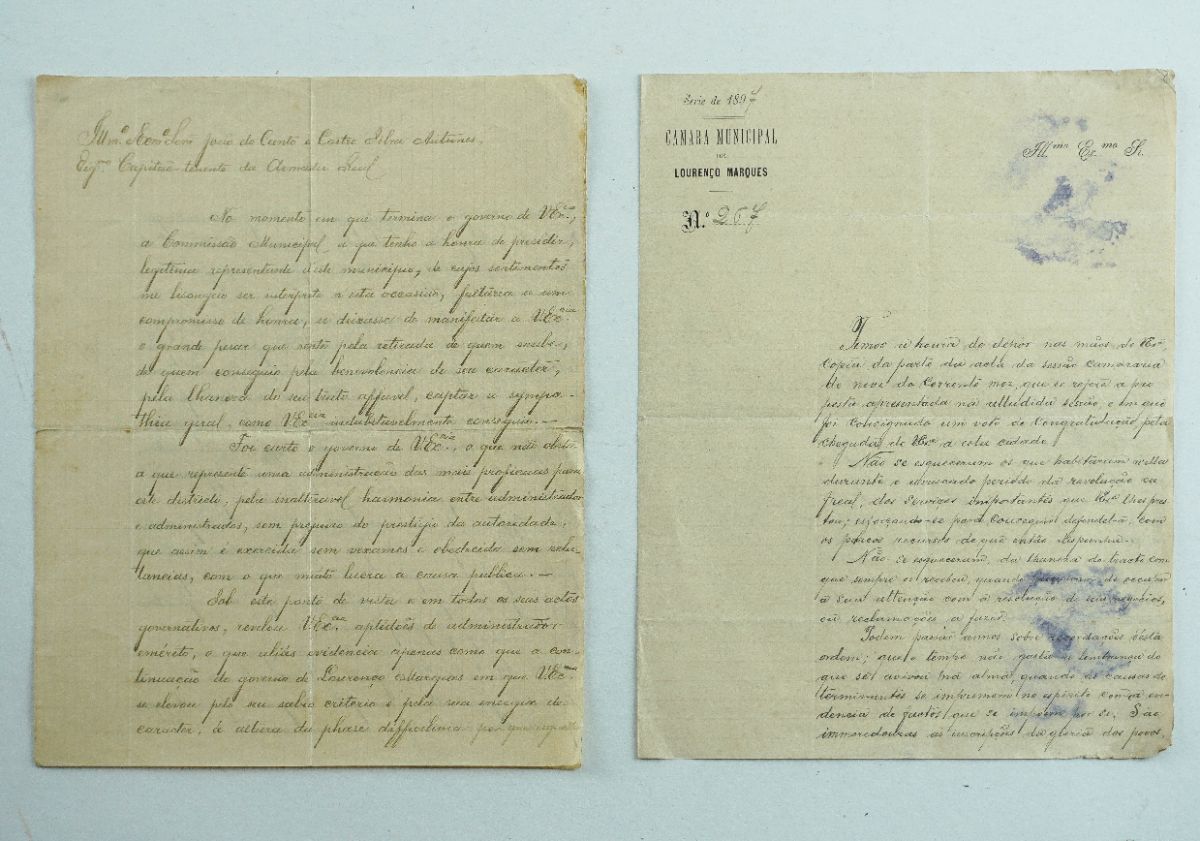 Ill.mo e Ex.mo Snr João do Canto e Castro Silva Antunes,
Capitão-tenente da Armada Real
No momento em que termina o governo de VEx.cia,
a Commissão Municipal, a que tenho a honra de presidir,
legitima representante d'este municipio, de cujos sentimentos
me lisongeio ser interprete n'esta occasião, faltaria a um
compromisso de honra, se deixasse de manifestar a VEx.cia
o grande pesar que sente pela retirada de quem soube,
de quem conseguio pela benevolencia de seu caracter,
pela lhaneza do seu tracto affavel, captar a sympa-
thia geral, como VEx.cia indubitavelmente conseguio.—
Foi curto o governo de VEx.cia, o que não obsta
a que represente uma administração das mais proficuas para
este districto, pela inalteravel harmonia entre administrador
e administrados, sem prejuizo do prestigio da autoridade,
que assim é exercida sem vexames e obedecida sem relu-
tancias, com o que muito lucra a causa publica.—
Sob este ponto de vista e em todos os seus actos
governativos, revelou VEx.cia aptidões de administrador
emérito, o que aliás evidencia apenas como que a con-
tinuação do governo de Lourenço Marques em que VEx.cia
se elevou pelo seu sabio criterio e pela sua energia de
caracter, á altura da phase difficilima
Serie de 1897
CAMARA MUNICIPAL
DE
LOURENÇO MARQUES
N.º 267
Ill.mo Ex.mo Sr.
Temos a honra de depôr nas mãos de Ex.cia
Copia da parte da acta da sessão camararia
de nove do corrente mez, que se refere a pro
posta apresentada na alludida sessão e em que
foi consignado um voto de congratulação pela
chegada de Ex.cia a esta cidade.
Não se esqueceram os que habitaram n'ella
durante o arriscado periodo da revolução ca
freal, dos serviços importantes que Ex.cia lhes pres
tou; esforçando-se para conseguir defendel-a, com
os poucos recursos de que então dispunha.
Não se esqueceram, da lhaneza do tracto com
que sempre os recebeu, quando de occupar
a sua attenção com a resolução de seus negocios,
ou reclamações a fazer.
Podem passar annos sobre recordações d'esta
ordem; que o tempo não gasta a lembrança do
que se avivou na alma, quando as causas de
terminantes se imprimem no espirito com a evi
dencia de factos que se impõem por si. São
immorredouras as inscripções da gloria dos povos,